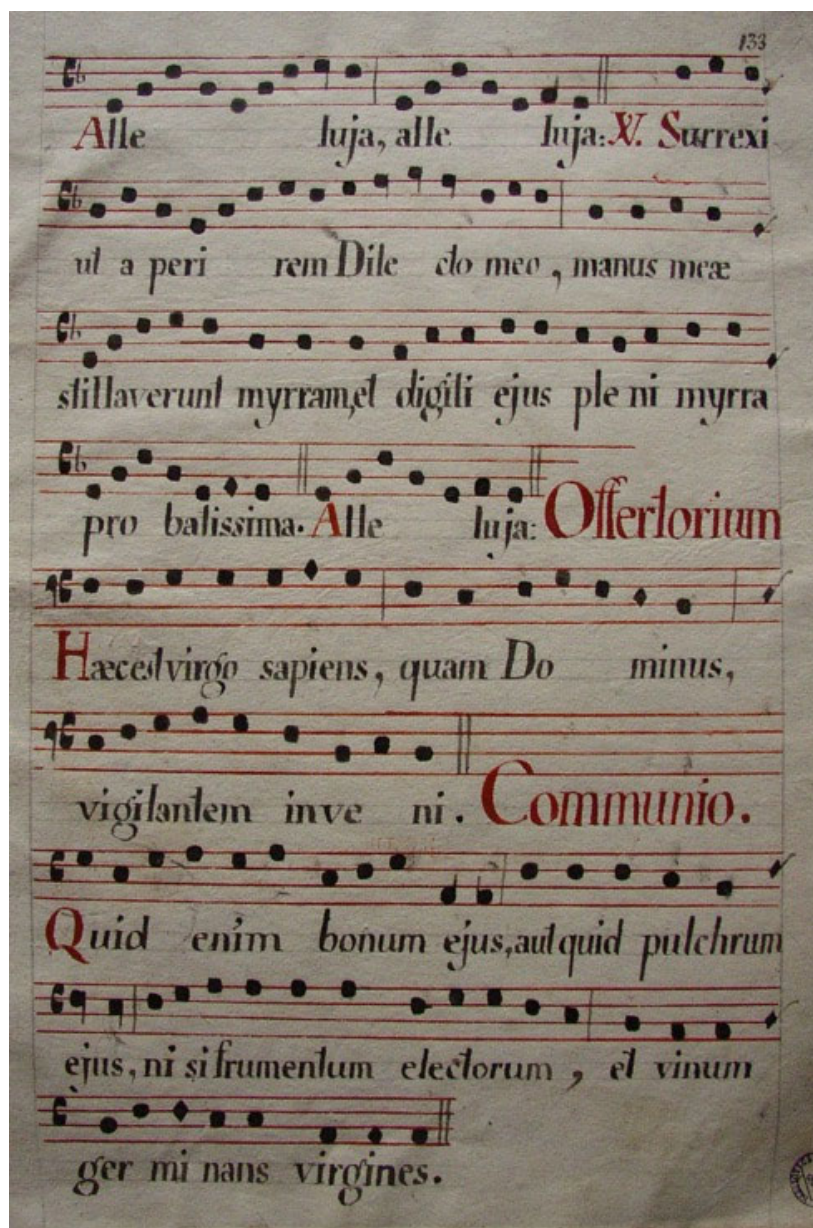 133
Alle luja, alle luja: V. Surrexi
ut a peri rem Dile cto meo, manus meæ
stillaverunt myrram, et digiti ejus ple ni myrra
pro batissima. Alle luja: Offertorium
Hæc est virgo sapiens, quam Do minus,
vigilantem inve ni. Communio.
Quid enim bonum ejus, aut quid pulchrum
ejus, ni si frumentum electorum, et vinum
ger mi nans virgines.